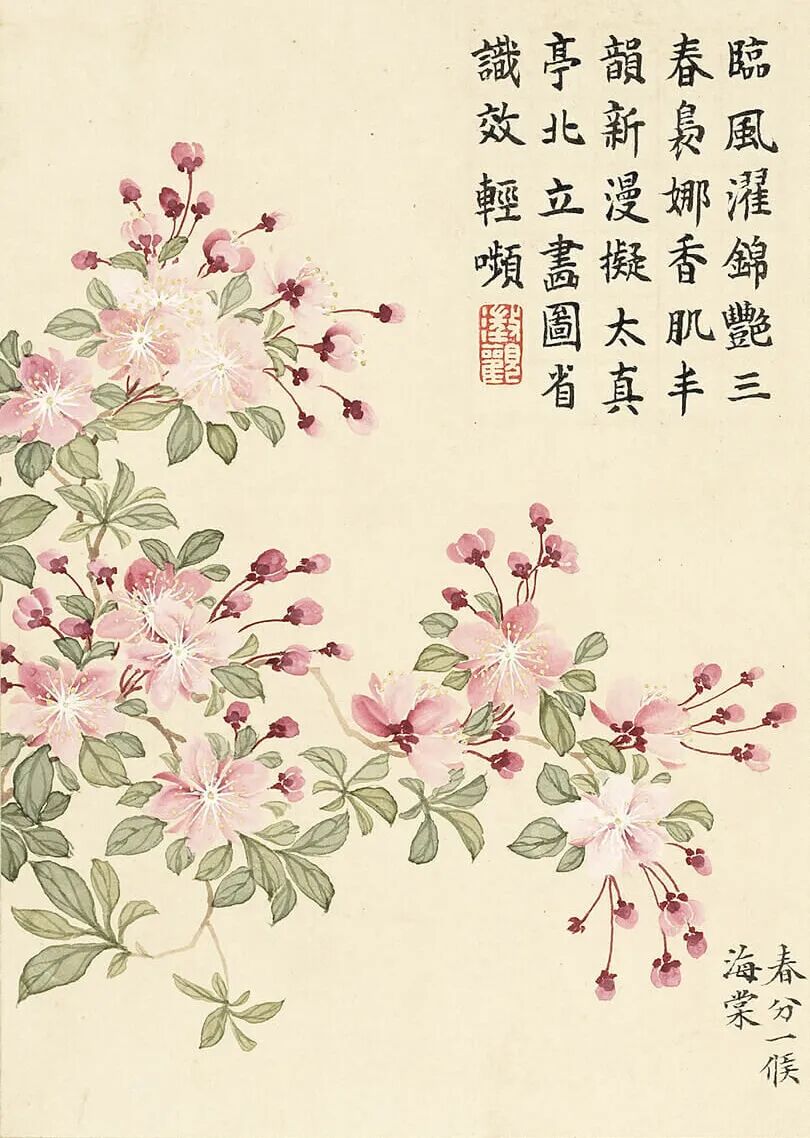 臨風濯錦豔三
春裊娜香肌丰
韻新漫擬太真
亭北立畫圖省
識效輕嚬
澂觀
春分一候
海棠